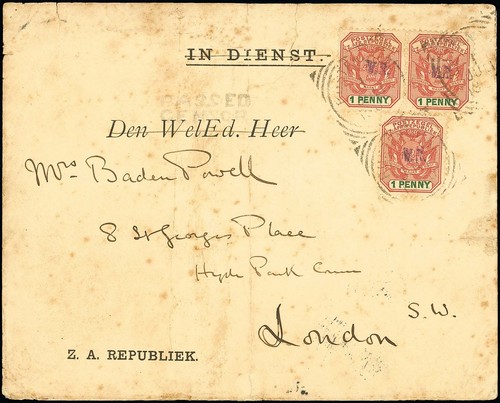 IN DIENST.
POSTZEGEL
1 PENNY
1 PENNY
V.R.
POSTZEGEL
V.R.
1 PENNY
PASSED
Den WelEd. Heer
Mrs Baden Powell
8 St Georges Place
Hyde Park
S.W.
London
Z. A. REPUBLIEK.